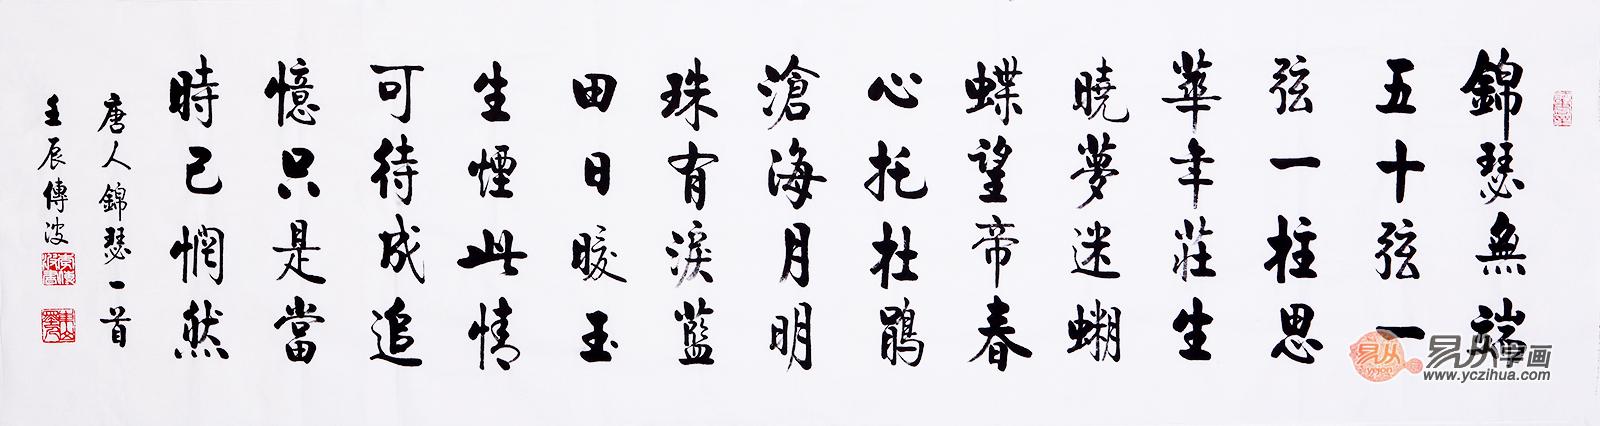 錦瑟無端
五十弦一
弦一柱思
華年莊生
曉夢迷蝴
蝶望帝春
心托杜鵑
滄海月明
珠有淚藍
田日暖玉
生煙此情
可待成追
憶只是當
時已惘然
唐人錦瑟一首
壬辰傳波
易从字画
www.yczihua.com
yejon